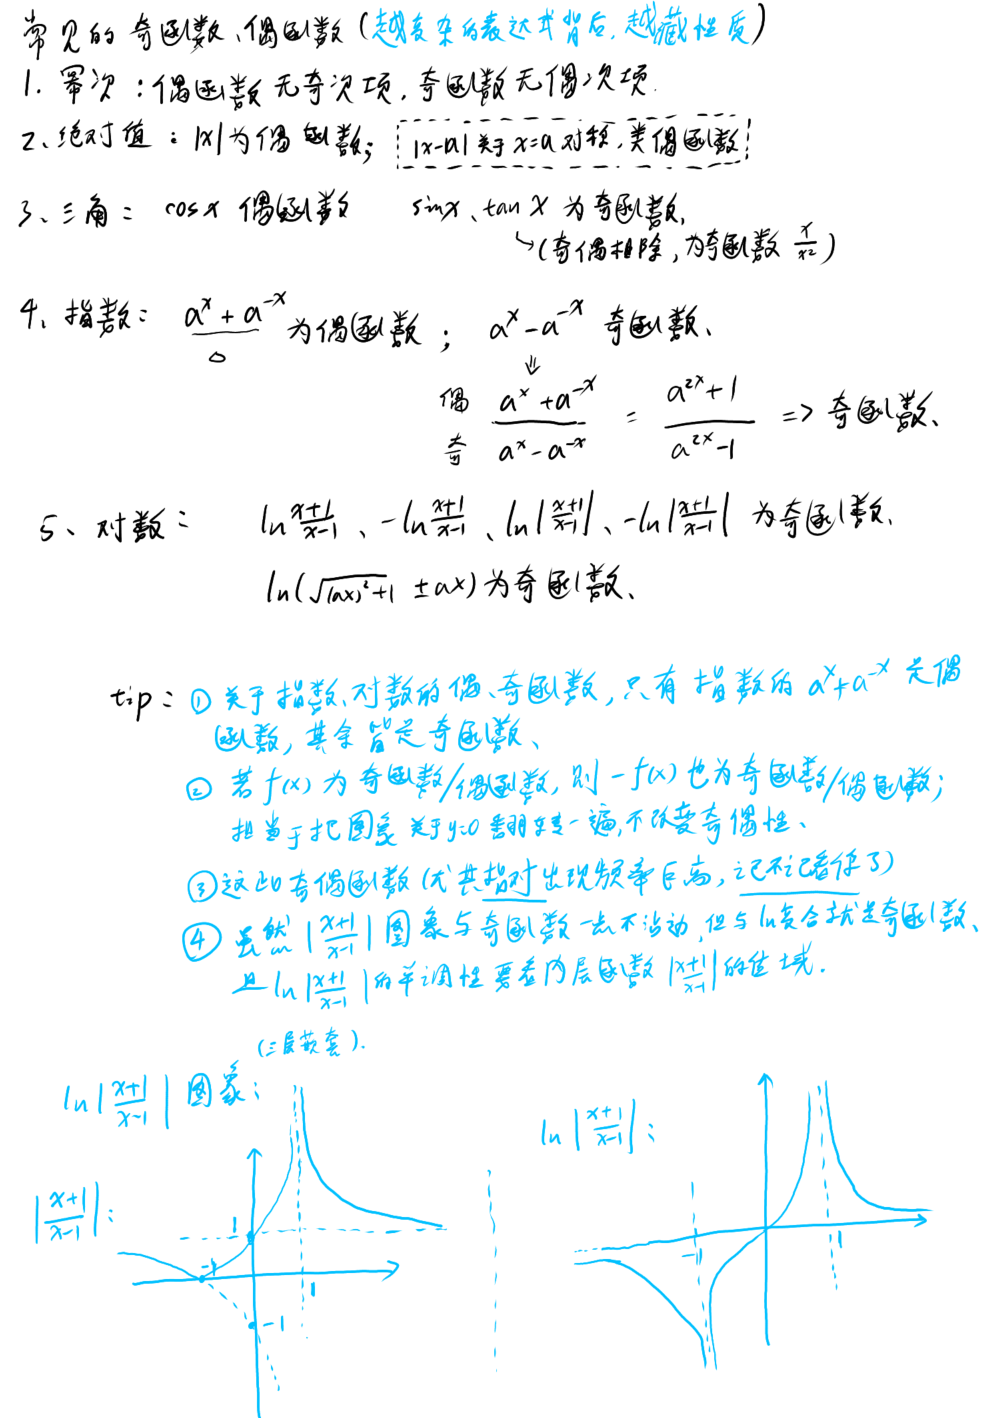 常见的奇函数、偶函数(越复杂的表达式背后,越藏性质)
1. 幂次:偶函数无奇次项,奇函数无偶次项.
2、绝对值:|x|为偶函数; |x-a|关于x=a对称,类偶函数
3、三角: cosx 偶函数 sinx、tanx 为奇函数.
↳(奇偶相除,为奇函数 x/x²)
4、指数: a^x + a^-x 为偶函数; a^x - a^-x 奇函数、
偶/奇 (a^x + a^-x)/(a^x - a^-x) = (a^2x + 1)/(a^2x - 1) => 奇函数、
5、对数: ln (x+1)/(x-1)、-ln (x+1)/(x-1)、ln|(x+1)/(x-1)|、-ln|(x+1)/(x-1)| 为奇函数.
ln(√((ax)²+1) ± ax)为奇函数、
tip: ① 关于指数、对数的偶、奇函数,只有指数的 a^x + a^-x 是偶
函数,其余皆是奇函数、
② 若f(x)为奇函数/偶函数,则 -f(x) 也为奇函数/偶函数;
相当于把图象关于y=0翻转一遍,不改变奇偶性、
③ 这些奇偶函数(尤其指对出现频率巨高,记不记看你了)
④ 虽然|(x+1)/(x-1)|图象与奇函数一点不沾边,但与ln复合就是奇函数、
且ln|(x+1)/(x-1)|的单调性要看内层函数|(x+1)/(x-1)|的值域.
(三层嵌套).
ln|(x+1)/(x-1)| 图象:
ln|(x+1)/(x-1)|:
|(x+1)/(x-1)|:
1
-1
1
-1
-1
1